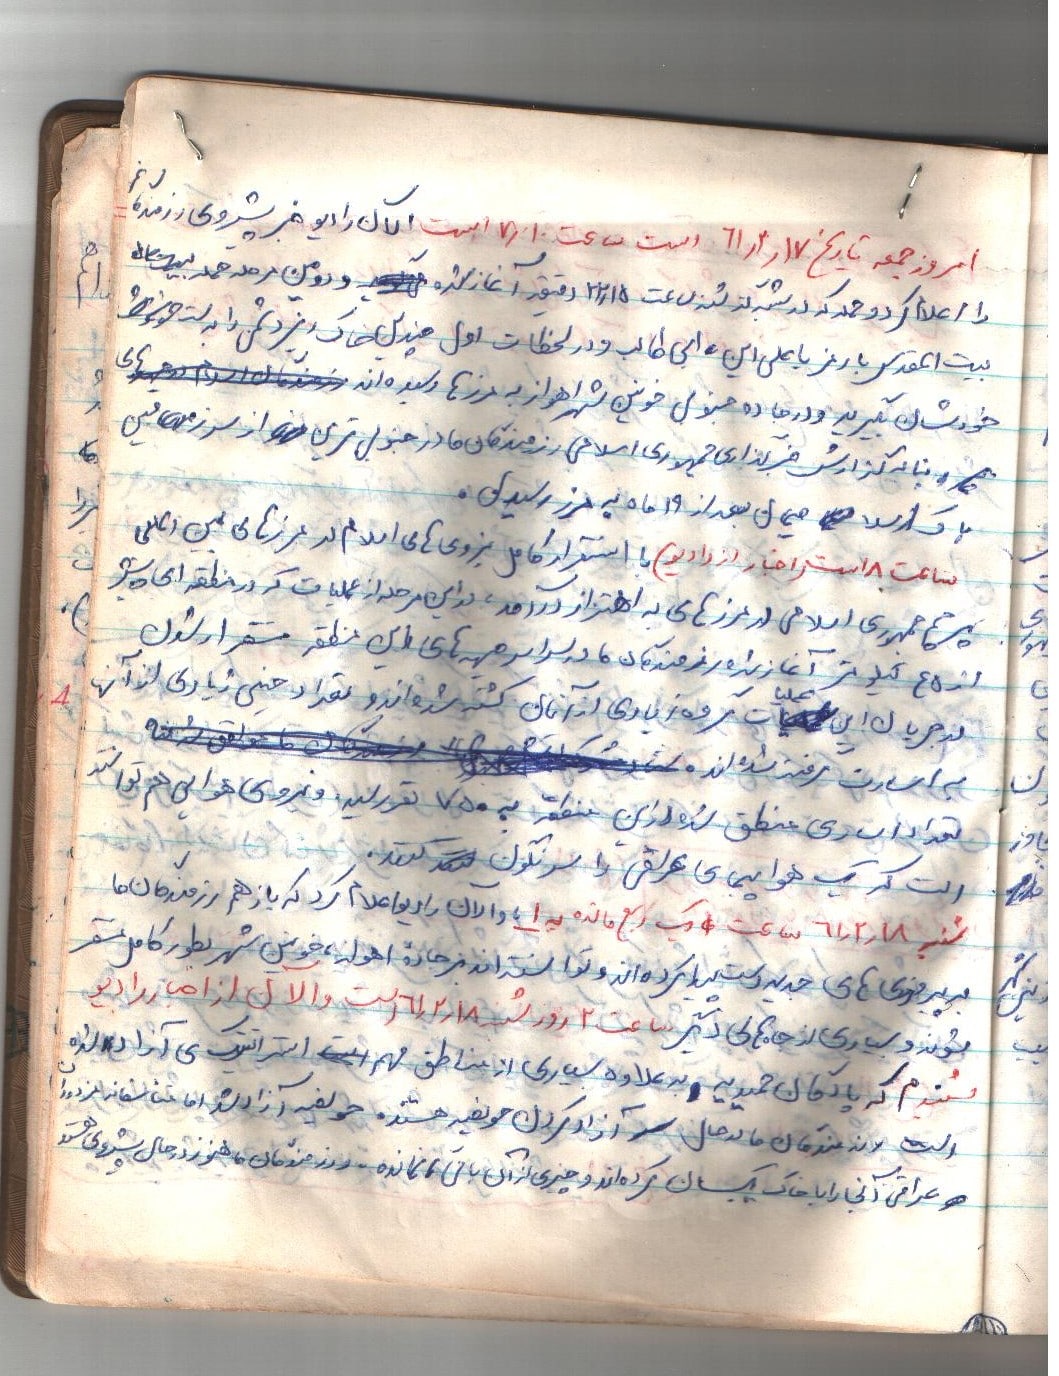 امروز جمعه تاریخ ۶۱/۲/۱۷ است ساعت است الان رادیو خبر پیشروی رزمندگان
را اعلام کرد و حمله که در شب گذشته ساعت ۲۲/۱۵ دقیقه آغاز شده و دومین مرحله حمله
بیت المقدس با رمز یا علی ابن ابی طالب و در لحظات اول چندین خاک ریز دشمن را بدست
خودشان بگیرند و در جاده جنوبی خونین شهر اهواز به مرزها رسیده اند
بنا به گزارش خبرگذاری جمهوری اسلامی رزمندگان ما در جنوبی ترین از سرزمین
پاک بعد از ۱۹ ماه به مرز رسیدن .
ساعت ۸ است (اخبار از رادیو) با استقرار کامل نیروی های اسلام در مرزهای بین المللی
پرچم جمهوری اسلامی در مرزهای به اهتزاز درآمد ، در این مرحله از عملیات که در منطقه ای
از ۴۵ کیلومتر آغاز شده رزمندگان ما در سراسر جبهه های این منطقه مستقر شدن
در جریان این عملیات گروه زیادی از آنان کشته شده اند و تعداد خیلی زیادی از آنها
به اسارت گرفته شده اند .
تعداد اسرای منطق شده از این منطقه به ۷۵۰ نفر رسید و نیروی هوایی هم توانسته
است که یک هواپیمای عراقی را سرنگون کند .
شنبه ۶۱/۲/۱۸ ساعت یک ربع مانده به ۱ و الان رادیو اعلام کرد که باز هم رزمندگان ما
به پیروزی های جدید دست پیدا کرده اند و توانسته اند در جاده اهواز ، خونین شهر بطور کامل مستقر
بشوند و بسیاری از جاهای دیگر ساعت ۲ روز شنبه ۶۱/۲/۱۸ است و الان از اخبار رادیو
شنیدم که پادگان حمیدیه ، به علاوه بسیاری از مناطق مهم استراتیک ی آزاد شده
است رزمندگان ما در حال آزاد کردن هویضیه هستند . هویضیه آزاد شد اما متاسفانه
عراقی آنجا را با خاک یکسان کرده اند و چیزی از آن باقی نمانده . رزمندگان ما هنوز در حال پیشروی هستند